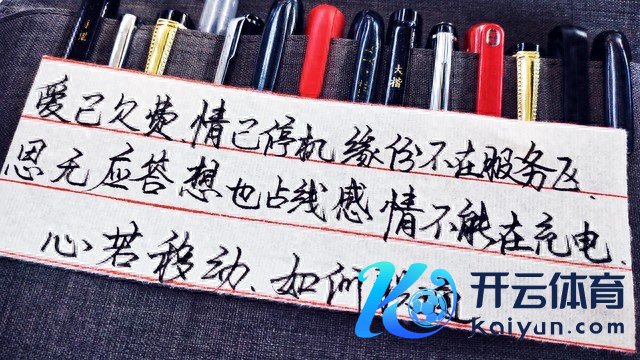 大楷
爱已欠费 情已停机 缘份不在服务区.
思无应答 想也占线 感情不能在充电.
心若移动、如何
开云体育
kaiyun.com